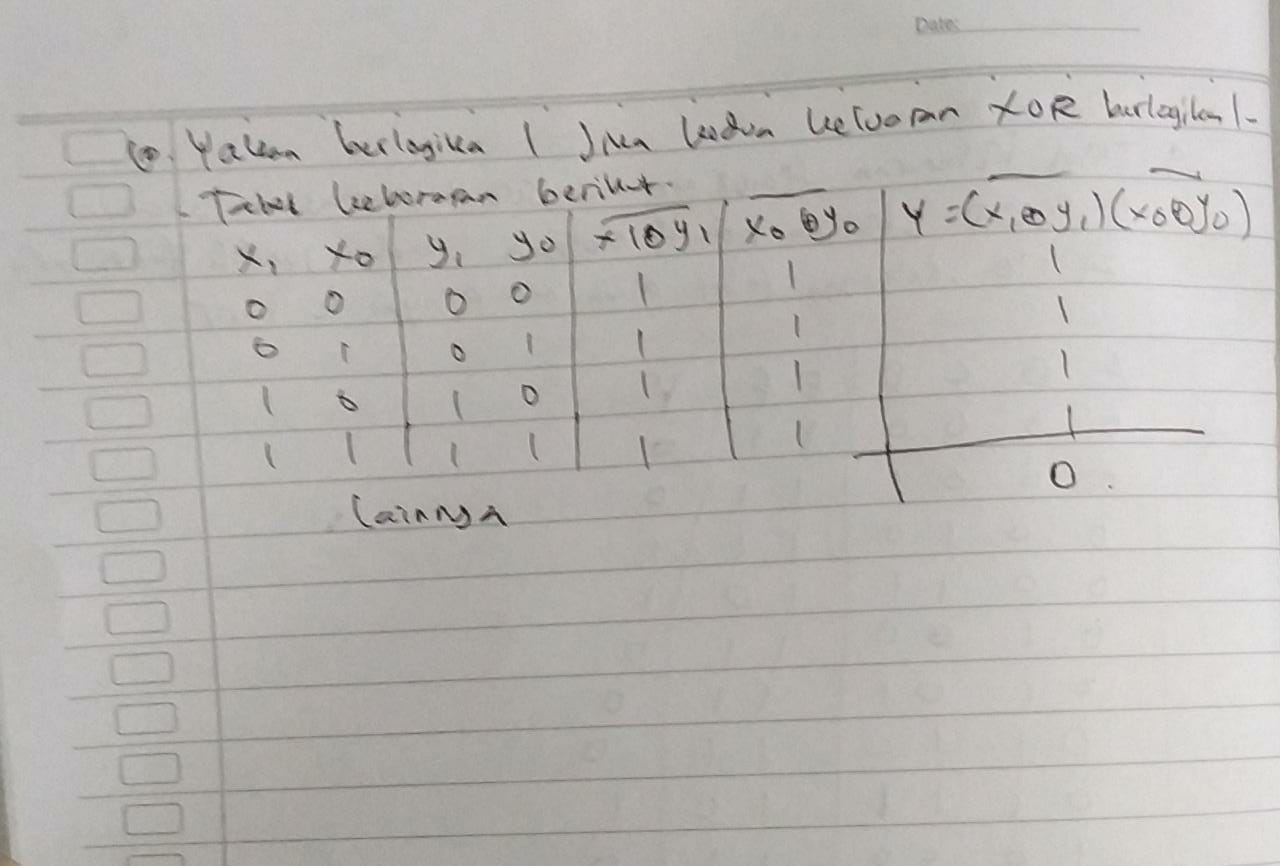 Date:
10. Y akan berlogika 1 Jika kedua keluaran XOR berlogika 1.
Tabel kebenaran berikut.
x₁ x₀ y₁ y₀ x̅₁̅⊕̅y̅₁̅ x̅₀̅⊕̅y̅₀̅ Y = (x̅₁̅⊕̅y̅₁̅)(x̅₀̅⊕̅y̅₀̅)
0 0 0 0 1 1 1
0 1 0 1 1 1 1
1 0 1 0 1 1 1
1 1 1 1 1 1 1
Lainnya 0.